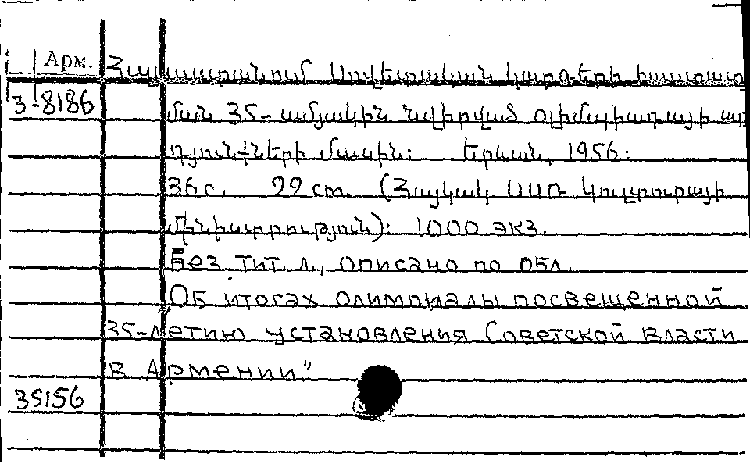 Арм. Հայաստանում Սովետական կարգերի հաստատ
3-8186 ման 35-ամյակին նվիրված օլիմպիադայի ար
դյունքների մասին: Երևան, 1956:
36 с. 22 cm. (Հայկակ. ՍՍՌ Կուլտուրայի
մինիստրություն): 1000 экз.
Без тит. л., описано по обл.
Об итогах олимпиады посвещенной
35-летию установления Советской власти
в Армении"
35156